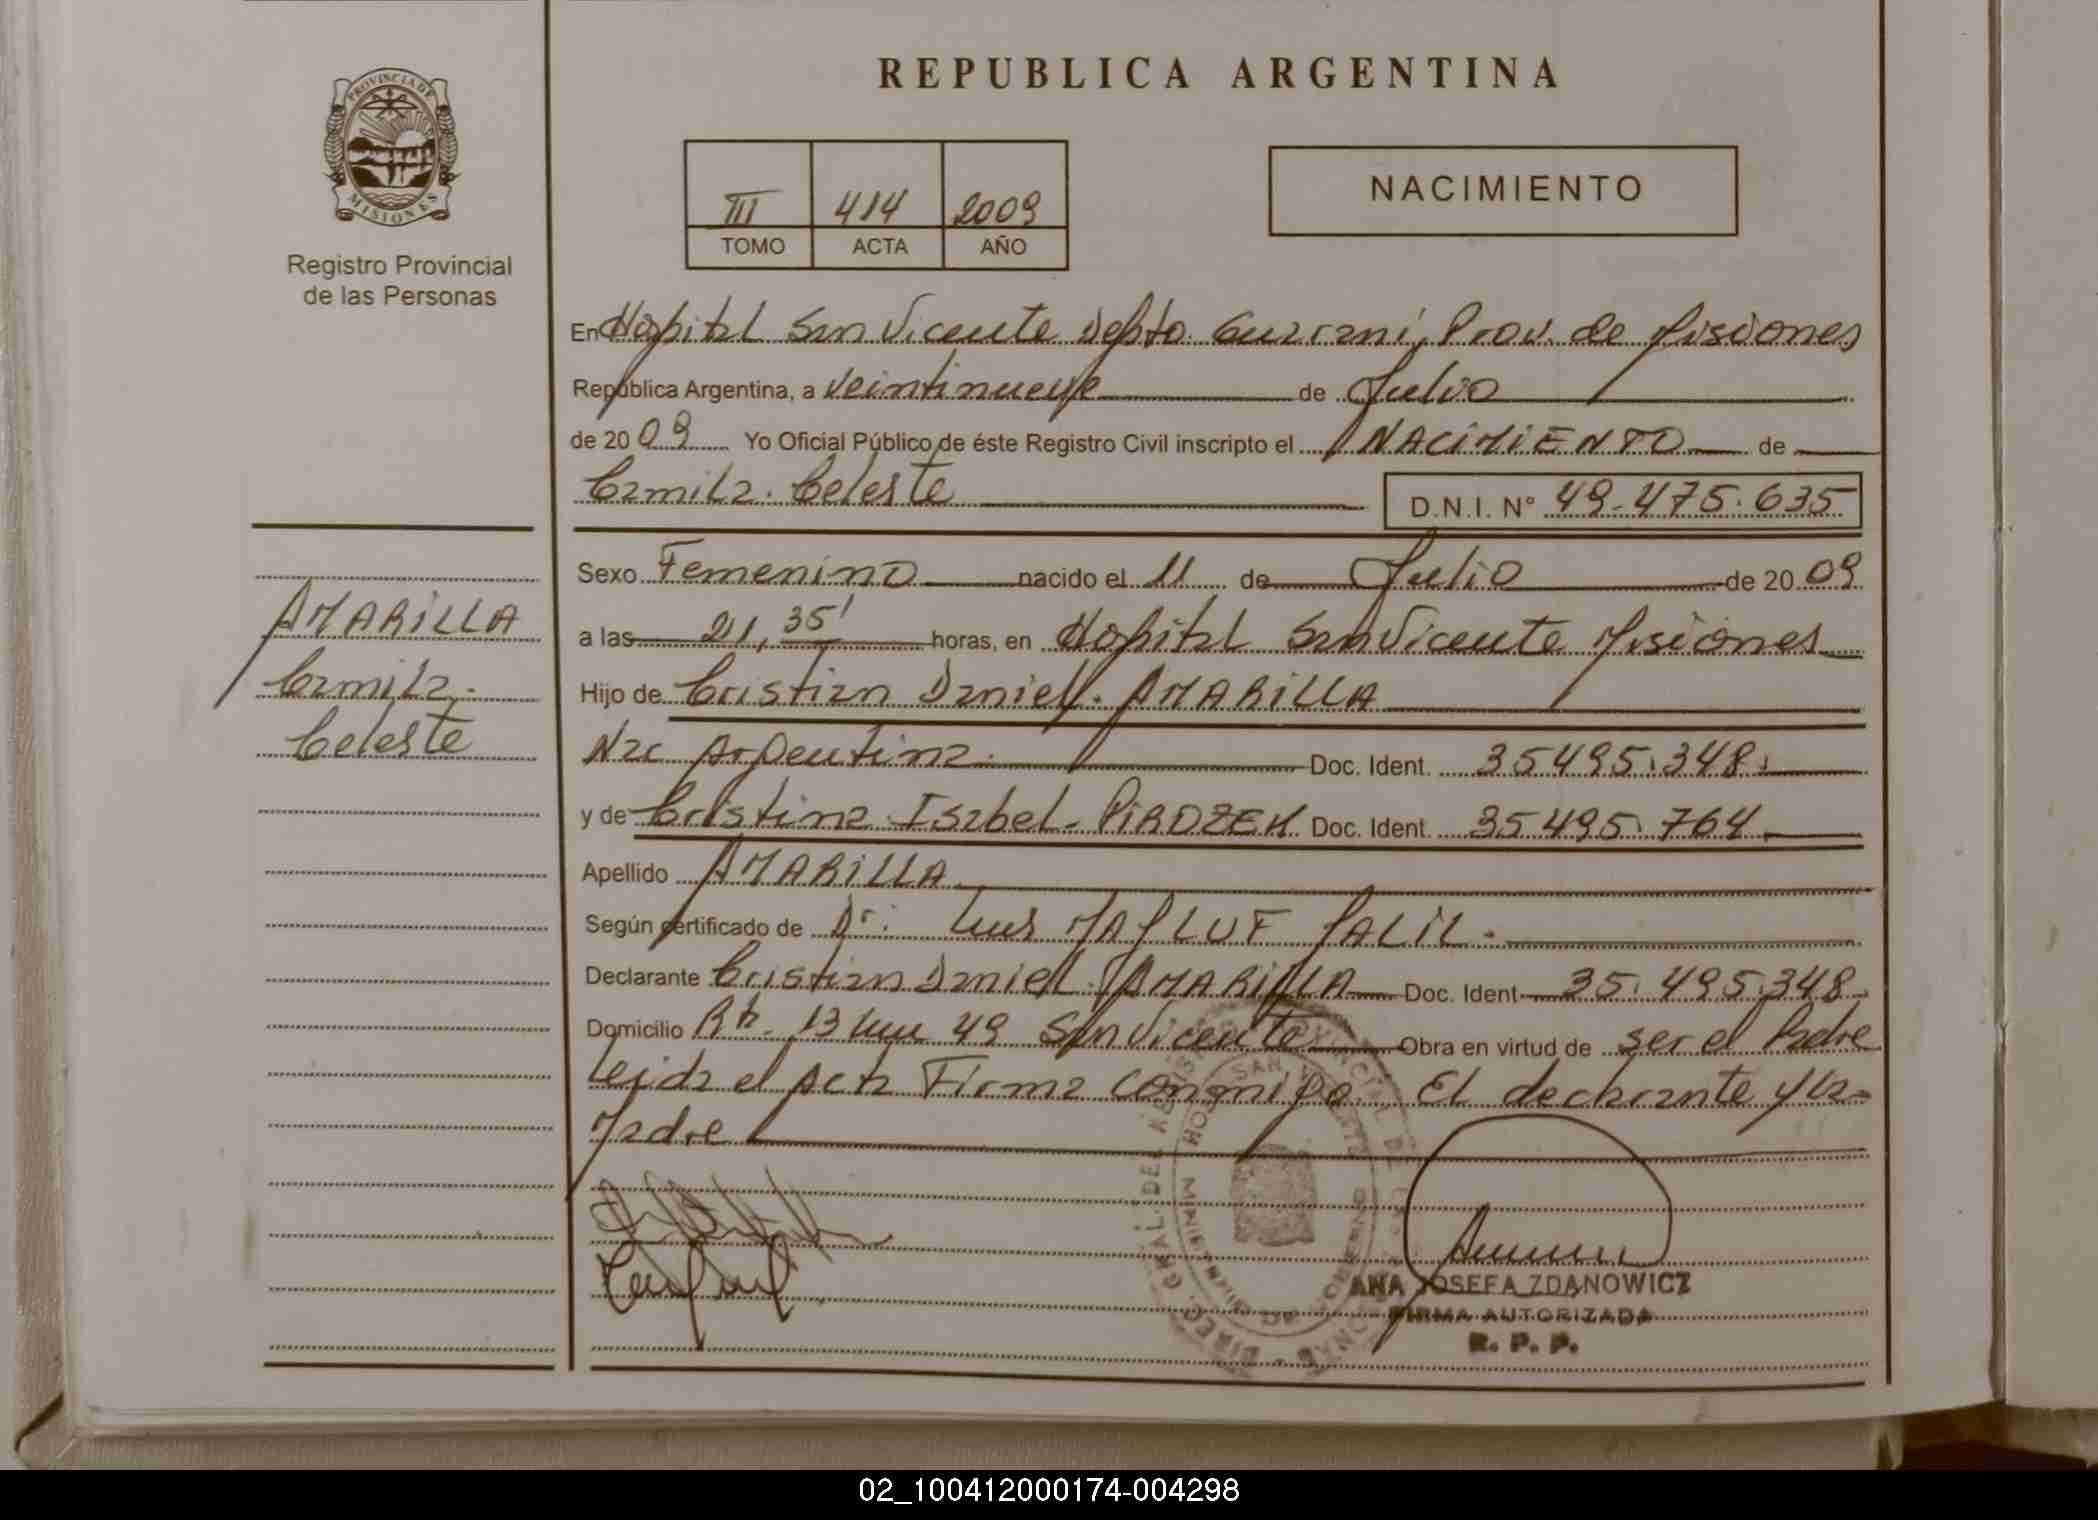 PROVINCIA DE
MISIONES
Registro Provincial
de las Personas
AMARILLA
Camila.
Celeste
REPUBLICA ARGENTINA
III 414 2009
TOMO ACTA AÑO
NACIMIENTO
En Hospital San Vicente Depto. Guarani, Prov. de Misiones
República Argentina, a Veintinueve de Julio
de 20 09 Yo Oficial Público de éste Registro Civil inscripto el NACIMIENTO de
Camila. Celeste D.N.I. N° 49-475.635
Sexo Femenino nacido el 11 de Julio de 20 09
a las 21,35' horas, en Hospital San Vicente Misiones
Hijo de Cristian Daniel. AMARILLA
Nac Argentina. Doc. Ident. 35495.348.
y de Cristina Isabel- Doc. Ident. 35495.764
Apellido AMARILLA
Según certificado de Dr. Luis JALIL.
Declarante Cristian Daniel. AMARILLA Doc. Ident 35.495.348
Domicilio 13 km 49 San Vicente Obra en virtud de ser el Padre
Leida el Acta Firma conmigo El declarante y la
Madre
ANA JOSEFA ZDANOWICZ
FIRMA AUTORIZADA
R. P. P.
02_100412000174-004298